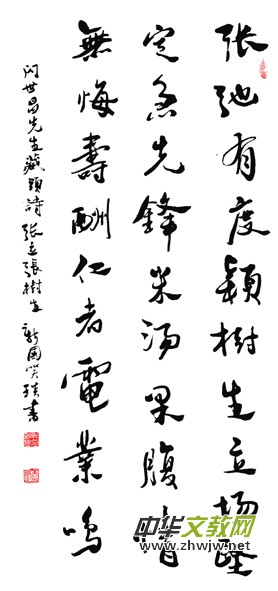 张弛有度颖樹生立场坚
定急先鋒米汤果腹
無悔壽酬仁者電業鳴
世昌先生藏頭詩 张立張樹生 國 書
中华文教网
www.zhwjw.net